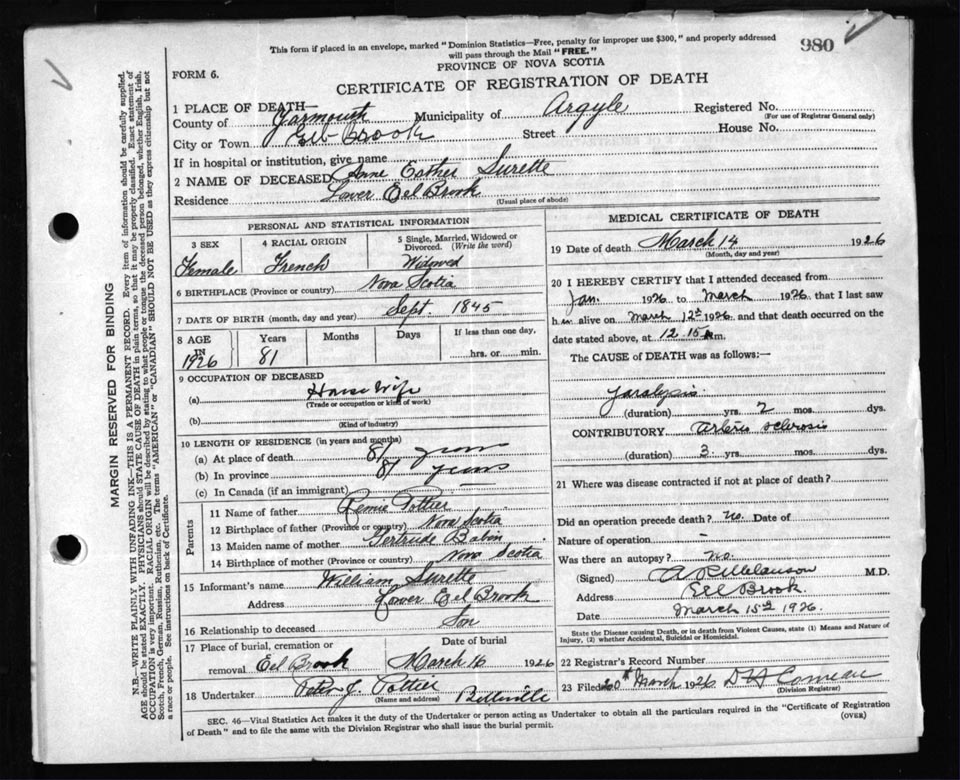 This form if placed in an envelope, marked "Dominion Statistics—Free, penalty for improper use $300," and properly addressed
will pass through the Mail "FREE."
980
PROVINCE OF NOVA SCOTIA
FORM 6.
CERTIFICATE OF REGISTRATION OF DEATH
1 PLACE OF DEATH—
County of Yarmouth Municipality of Argyle Registered No.
(For use of Registrar General only)
City or Town Eel Brook Street House No.
If in hospital or institution, give name
2 NAME OF DECEASED Anne Esther Surette
Residence Lower Eel Brook
(Usual place of abode)
PERSONAL AND STATISTICAL INFORMATION
3 SEX 4 RACIAL ORIGIN 5 Single, Married, Widowed or Divorced. (Write the word)
Female French Widowed
6 BIRTHPLACE (Province or country) Nova Scotia
7 DATE OF BIRTH (month, day and year) Sept. 1845
8 AGE Years Months Days If less than one day,
IN 1926 81 hrs. or min.
9 OCCUPATION OF DECEASED
(a) House Wife
(Trade or occupation or kind of work)
(b)
(Kind of industry)
10 LENGTH OF RESIDENCE (in years and months)
(a) At place of death 81 years
(b) In province 81 years
(c) In Canada (if an immigrant)
Parents
11 Name of father Remie Pottier
12 Birthplace of father (Province or country) Nova Scotia
13 Maiden name of mother Gertrude Babin
14 Birthplace of mother (Province or country) Nova Scotia
15 Informant's name William Surette
Address Lower Eel Brook
16 Relationship to deceased Son
17 Place of burial, cremation or Date of burial
removal Eel Brook March 16 1926
18 Undertaker Peter J. Pottier Belleville
(Name and address)
MEDICAL CERTIFICATE OF DEATH
19 Date of death March 14 1926
(Month, day and year)
20 I HEREBY CERTIFY that I attended deceased from
Jan. 1926 to March 1926, that I last saw
her alive on March 12th 1926, and that death occurred on the
date stated above, at 12.15 A m.
The CAUSE of DEATH was as follows:—
Paralysis
(duration) yrs. 2 mos. dys.
CONTRIBUTORY Arterio sclerosis
(duration) 3 yrs. mos. dys.
21 Where was disease contracted if not at place of death?
Did an operation precede death? No. Date of
Nature of operation —
Was there an autopsy? No.
(Signed) A. P. Melanson M.D.
Address Eel Brook.
Date March 15th 1926.
State the Disease causing Death, or in death from Violent Causes, state (1) Means and Nature of
Injury, (2) whether Accidental, Suicidal or Homicidal.
22 Registrar's Record Number
23 Filed 20th March 1926 D H Comeau
(Division Registrar)
SEC. 46—Vital Statistics Act makes it the duty of the Undertaker or person acting as Undertaker to obtain all the particulars required in the "Certificate of Registration
of Death" and to file the same with the Division Registrar who shall issue the burial permit.
(OVER)
MARGIN RESERVED FOR BINDING
N.B.—WRITE PLAINLY WITH UNFADING INK—THIS IS A PERMANENT RECORD. Every item of information should be carefully supplied.
AGE should be stated EXACTLY. PHYSICIANS should STATE CAUSE OF DEATH in plain terms, so that it may be properly classified. Exact statement of
OCCUPATION is very important. RACIAL ORIGIN will be described by stating to what people or tongue the deceased person belonged, whether English, Irish,
Scotch, French, German, Russian, Ruthenian, etc. The terms "AMERICAN" or "CANADIAN" SHOULD NOT BE USED as they express citizenship but not
a race or people. See instructions on back of Certificate.